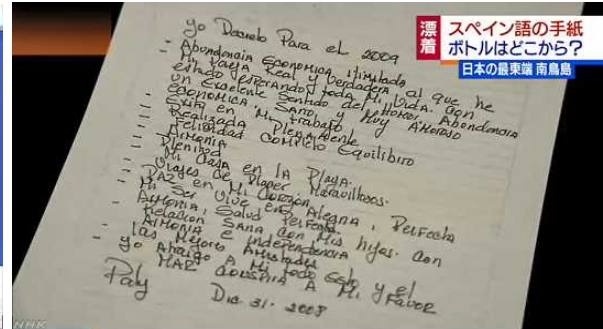 漂着
スペイン語の手紙
ボトルはどこから?
日本の最東端 南鳥島
yo Decreto Para el 2009
- Abundancia Economica ilimitada
- Mi Pareja Real y Verdadera al que he
estado esperando toda Mi Vida. Con
un Excelente Sentido del Humor. Abundancia
Economica. Sano y Muy Amoroso
- Exito en Mi Trabajo
- Realizada Plenamente
- Felicidad Completo Equilibiro
- Armonia
- Plenitud
- Mi Casa en la Playa.
- Viajes de Placer Maravillosos.
- Paz en Mi Corazon
Mi Ser Vive en Alegria, Perfecta
Armonia, Salud Perfecta.
- Relacion Sana con Mis hijos. Con
Armonia e independencia
- Las Mejores Amistades
- yo Atraigo A Mi todo Esto y el
MAR Conspira A Mi Favor
Paty Dic 31. 2008
NHK